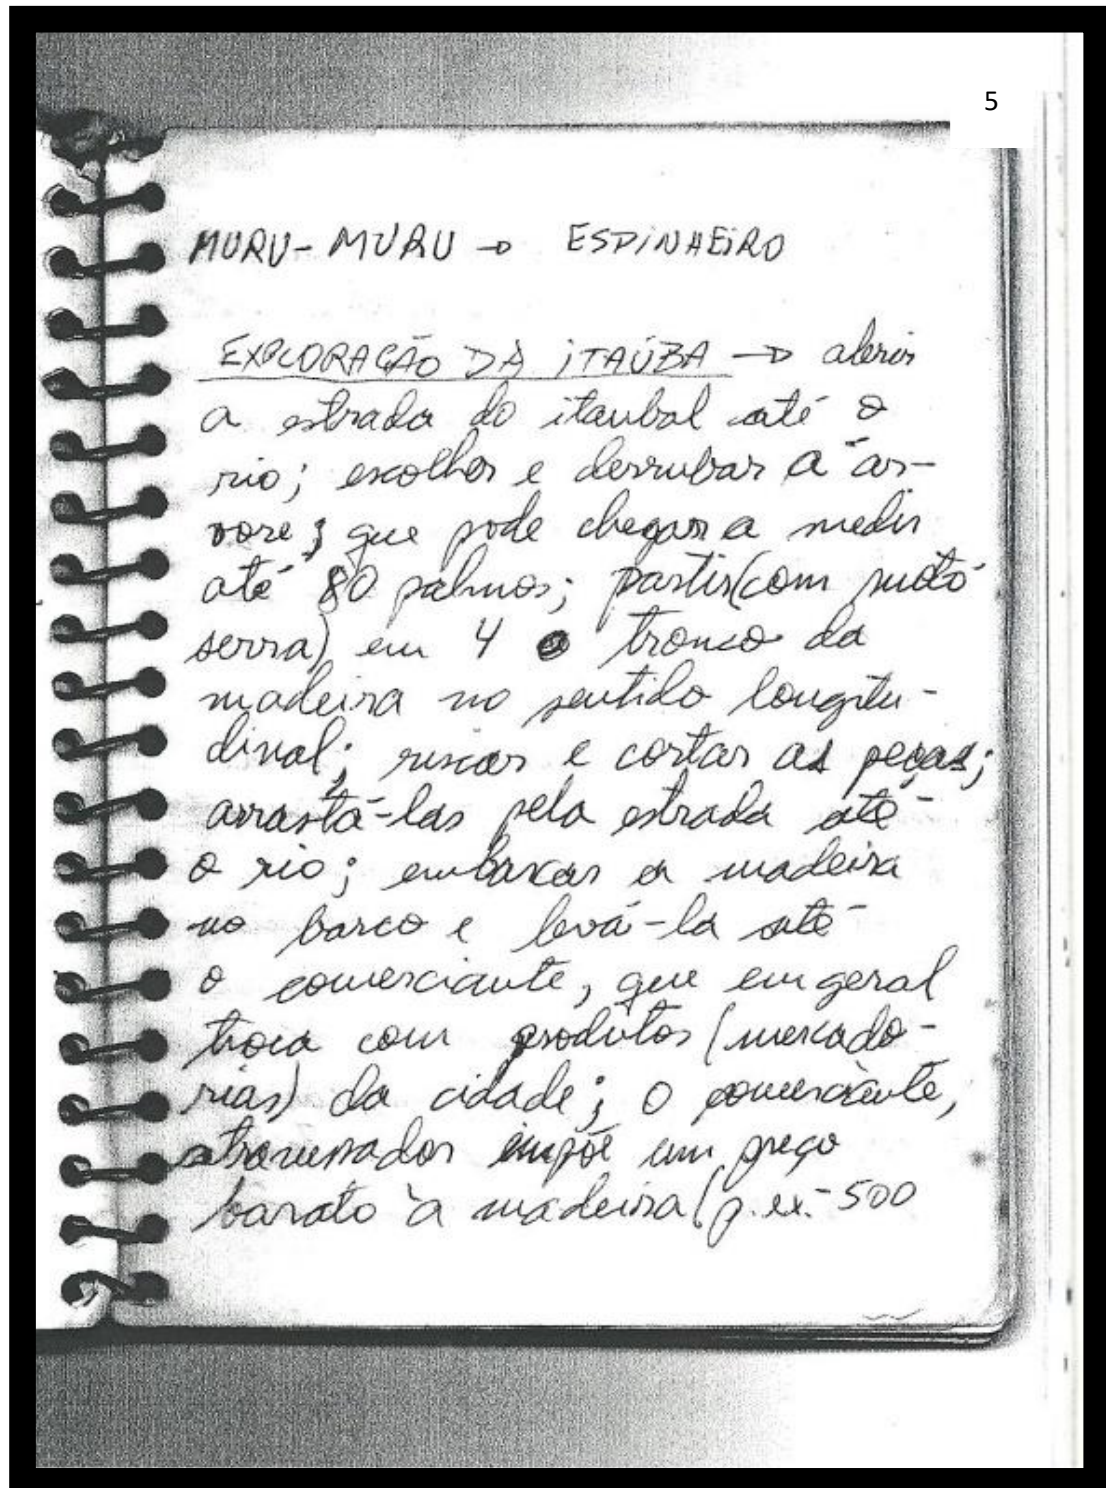 5
MURU-MURU → ESPINHEIRO
EXPLORAÇÃO DA ITAÚBA → abrir
a estrada do itaubal até o
rio; escolher e derrubar a ár-
vore; que pode chegar a medir
até 80 palmos; partir (com moto
serra) em 4 o tronco da
madeira no sentido longitu-
dinal; riscar e cortar as peças;
arrastá-las pela estrada até
o rio; embarcar a madeira
no barco e levá-la até
o comerciante, que em geral
troca com produtos (mercado-
rias) da cidade; o comerciante,
atravessador impõe um preço
barato à madeira (p. ex. 500